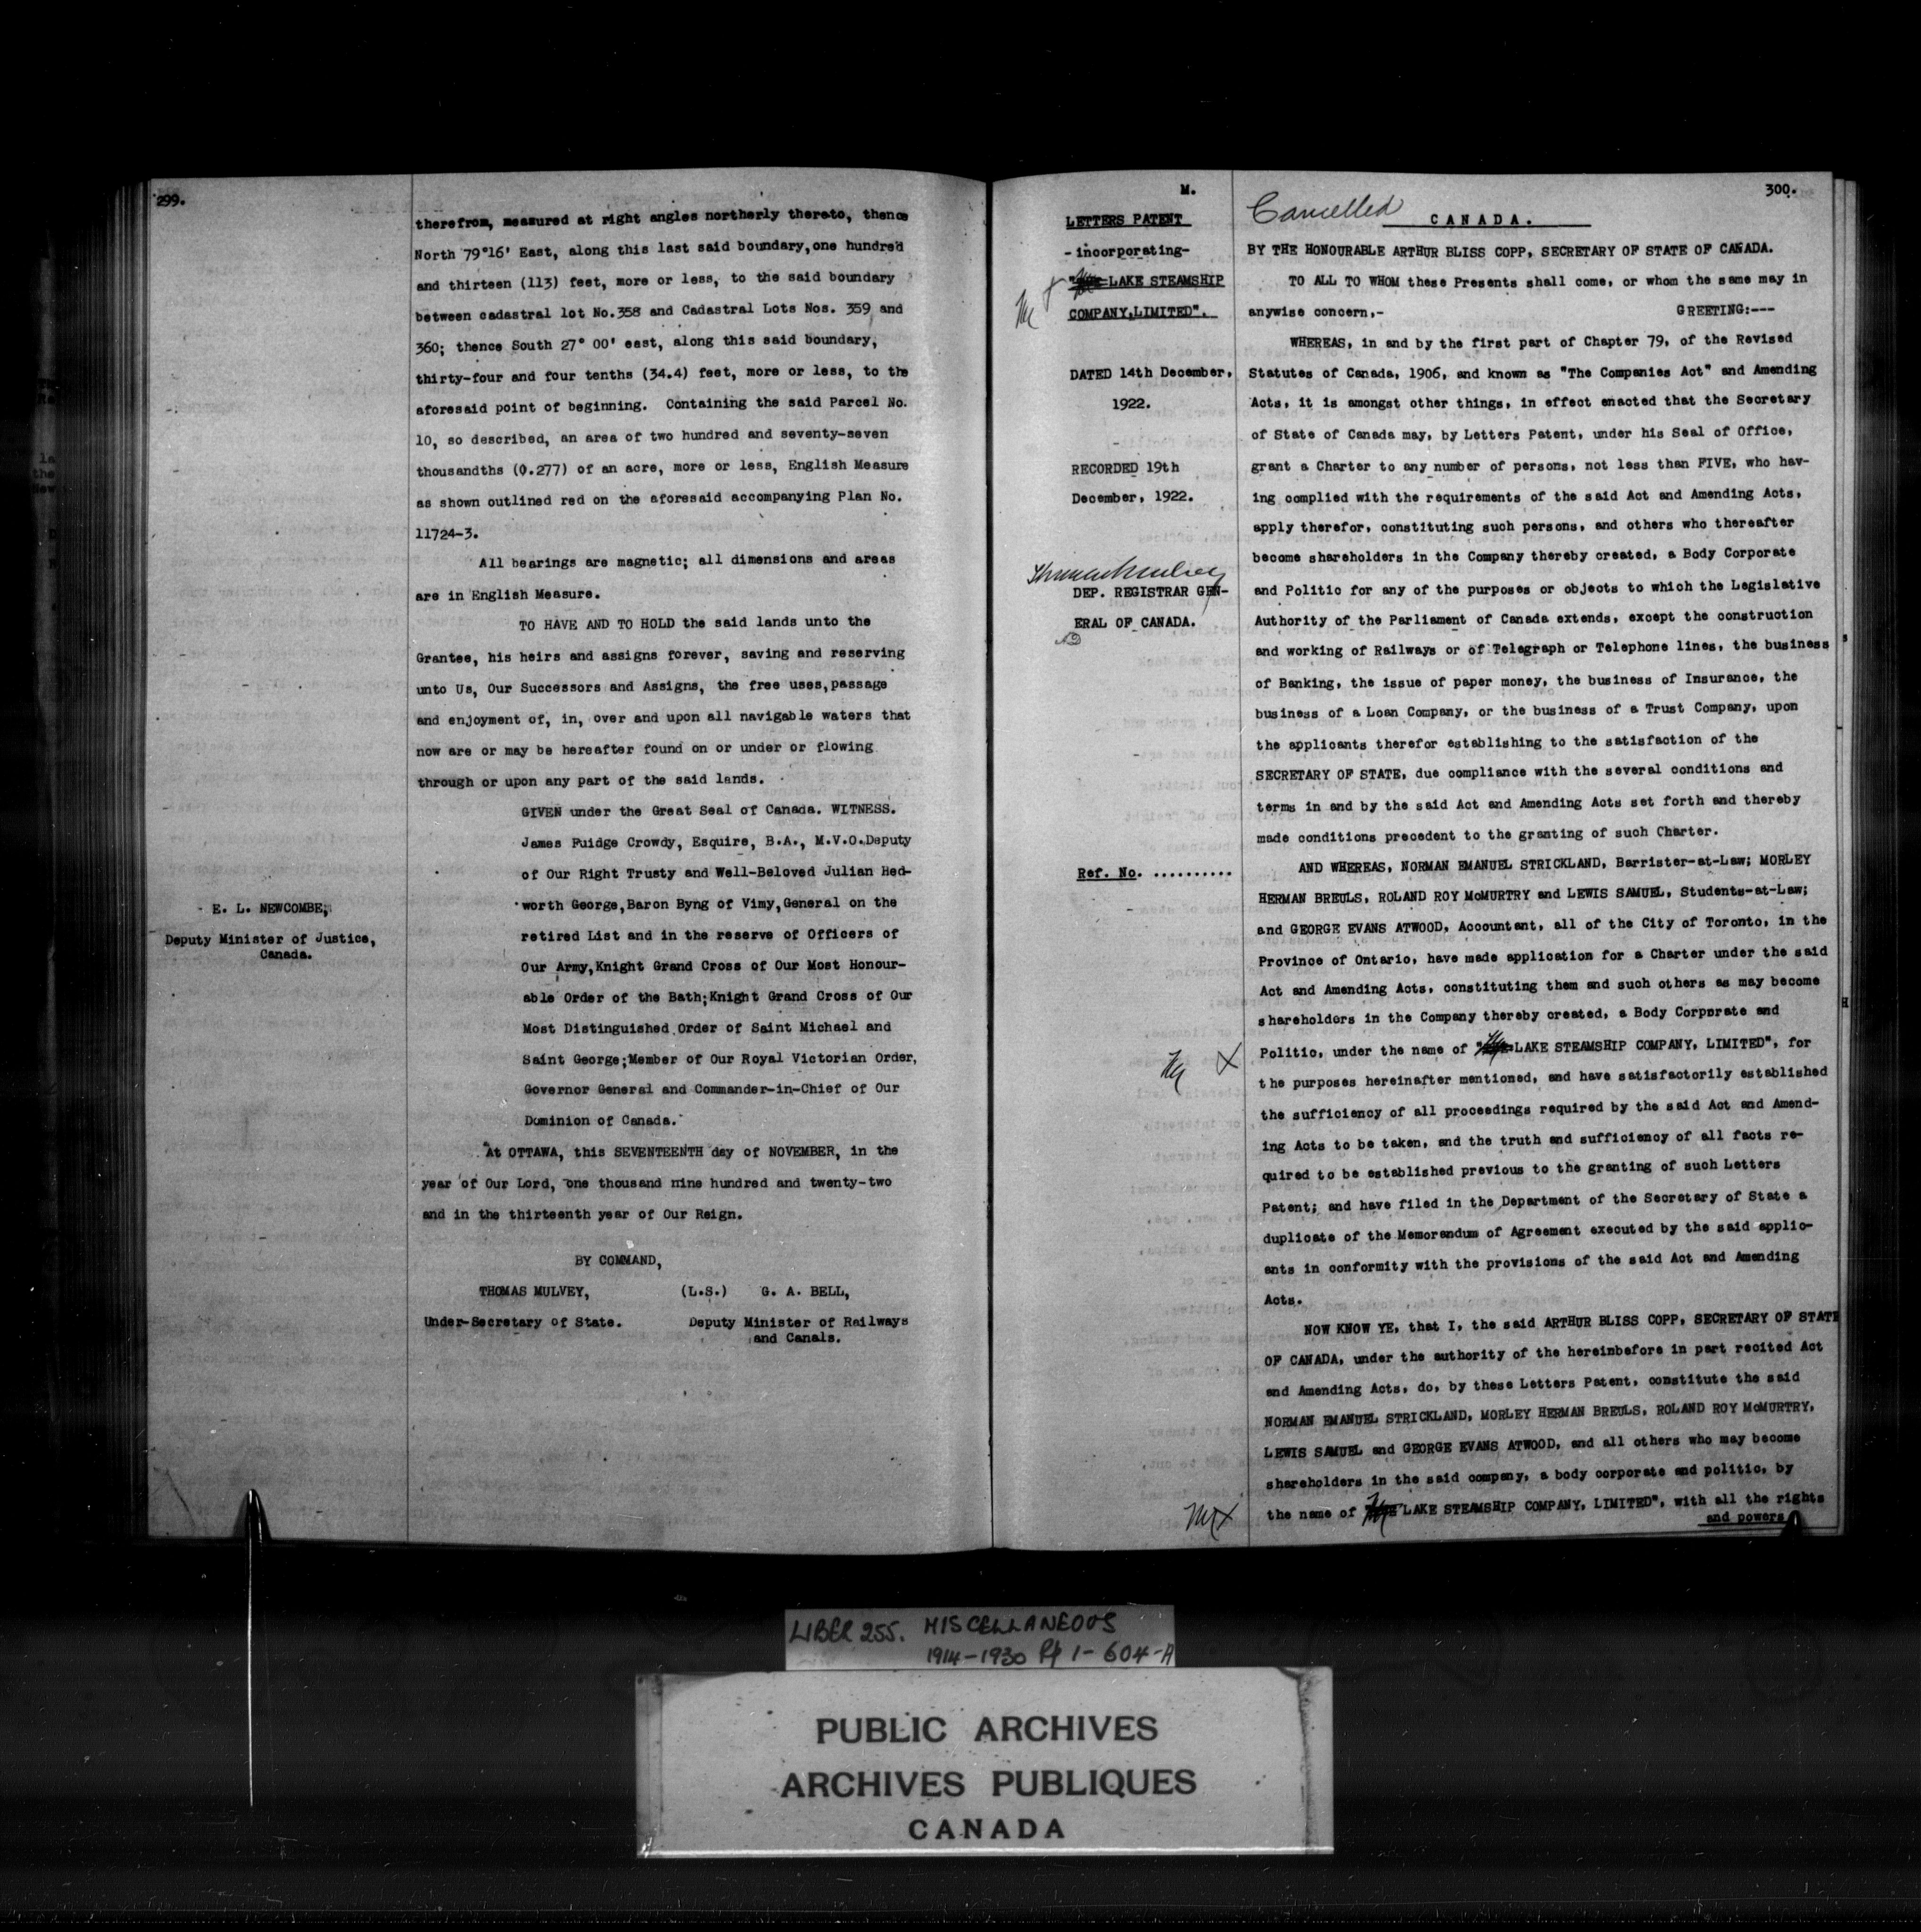 299.
therefrom, measured at right angles northerly thereto, thence
North 79°16' East, along this last said boundary, one hundred
and thirteen (113) feet, more or less, to the said boundary
between cadastral lot No.358 and Cadastral Lots Nos. 359 and
360; thence South 27° 00' east, along this said boundary,
thirty-four and four tenths (34.4) feet, more or less, to the
aforesaid point of beginning. Containing the said Parcel No.
10, so described, an area of two hundred and seventy-seven
thousandths (0.277) of an acre, more or less, English Measure
as shown outlined red on the aforesaid accompanying Plan No.
11724-3.
All bearings are magnetic; all dimensions and areas
are in English Measure.
TO HAVE AND TO HOLD the said lands unto the
Grantee, his heirs and assigns forever, saving and reserving
unto Us, Our Successors and Assigns, the free uses, passage
and enjoyment of, in, over and upon all navigable waters that
now are or may be hereafter found on or under or flowing
through or upon any part of the said lands.
GIVEN under the Great Seal of Canada. WITNESS.
James Fuidge Crowdy, Esquire, B.A., M.V.O.Deputy
of Our Right Trusty and Well-Beloved Julian Hed-
worth George, Baron Byng of Vimy, General on the
retired List and in the reserve of Officers of
Our Army, Knight Grand Cross of Our Most Honour-
able Order of the Bath; Knight Grand Cross of Our
Most Distinguished Order of Saint Michael and
Saint George; Member of Our Royal Victorian Order,
Governor General and Commander-in-Chief of Our
Dominion of Canada.
At OTTAWA, this SEVENTEENTH day of NOVEMBER, in the
year of Our Lord, one thousand nine hundred and twenty-two
and in the thirteenth year of Our Reign.
BY COMMAND,
THOMAS MULVEY, (L.S.) G. A. BELL,
Under-Secretary of State. Deputy Minister of Railways
and Canals.
E. L. NEWCOMBE,
Deputy Minister of Justice,
Canada.
M.
LETTERS PATENT
-incorporating-
" LAKE STEAMSHIP
COMPANY, LIMITED".
DATED 14th December,
1922.
RECORDED 19th
December, 1922.
DEP. REGISTRAR GEN-
ERAL OF CANADA.
Ref. No. ..........
300.
Cancelled
CANADA.
BY THE HONOURABLE ARTHUR BLISS COPP, SECRETARY OF STATE OF CANADA.
TO ALL TO WHOM these Presents shall come, or whom the same may in
anywise concern,- GREETING:---
WHEREAS, in and by the first part of Chapter 79, of the Revised
Statutes of Canada, 1906, and known as "The Companies Act" and Amending
Acts, it is amongst other things, in effect enacted that the Secretary
of State of Canada may, by Letters Patent, under his Seal of Office,
grant a Charter to any number of persons, not less than FIVE, who hav-
ing complied with the requirements of the said Act and Amending Acts,
apply therefor, constituting such persons, and others who thereafter
become shareholders in the Company thereby created, a Body Corporate
and Politic for any of the purposes or objects to which the Legislative
Authority of the Parliament of Canada extends, except the construction
and working of Railways or of Telegraph or Telephone lines, the business
of Banking, the issue of paper money, the business of Insurance, the
business of a Loan Company, or the business of a Trust Company, upon
the applicants therefor establishing to the satisfaction of the
SECRETARY OF STATE, due compliance with the several conditions and
terms in and by the said Act and Amending Acts set forth and thereby
made conditions precedent to the granting of such Charter.
AND WHEREAS, NORMAN EMANUEL STRICKLAND, Barrister-at-Law; MORLEY
HERMAN BREULS, ROLAND ROY McMURTRY and LEWIS SAMUEL, Students-at-Law;
and GEORGE EVANS ATWOOD, Accountant, all of the City of Toronto, in the
Province of Ontario, have made application for a Charter under the said
Act and Amending Acts, constituting them and such others as may become
shareholders in the Company thereby created, a Body Corporate and
Politic, under the name of " LAKE STEAMSHIP COMPANY, LIMITED", for
the purposes hereinafter mentioned, and have satisfactorily established
the sufficiency of all proceedings required by the said Act and Amend-
ing Acts to be taken, and the truth and sufficiency of all facts re-
quired to be established previous to the granting of such Letters
Patent; and have filed in the Department of the Secretary of State a
duplicate of the Memorandum of Agreement executed by the said applic-
ants in conformity with the provisions of the said Act and Amending
Acts.
NOW KNOW YE, that I, the said ARTHUR BLISS COPP, SECRETARY OF STATE
OF CANADA, under the authority of the hereinbefore in part recited Act
and Amending Acts, do, by these Letters Patent, constitute the said
NORMAN EMANUEL STRICKLAND, MORLEY HERMAN BREULS, ROLAND ROY McMURTRY,
LEWIS SAMUEL and GEORGE EVANS ATWOOD, and all others who may become
shareholders in the said company, a body corporate and politic, by
the name of LAKE STEAMSHIP COMPANY, LIMITED", with all the rights
and powers
LIBER 255. MISCELLANEOUS
1914-1930 Pp 1-604-A
PUBLIC ARCHIVES
ARCHIVES PUBLIQUES
CANADA